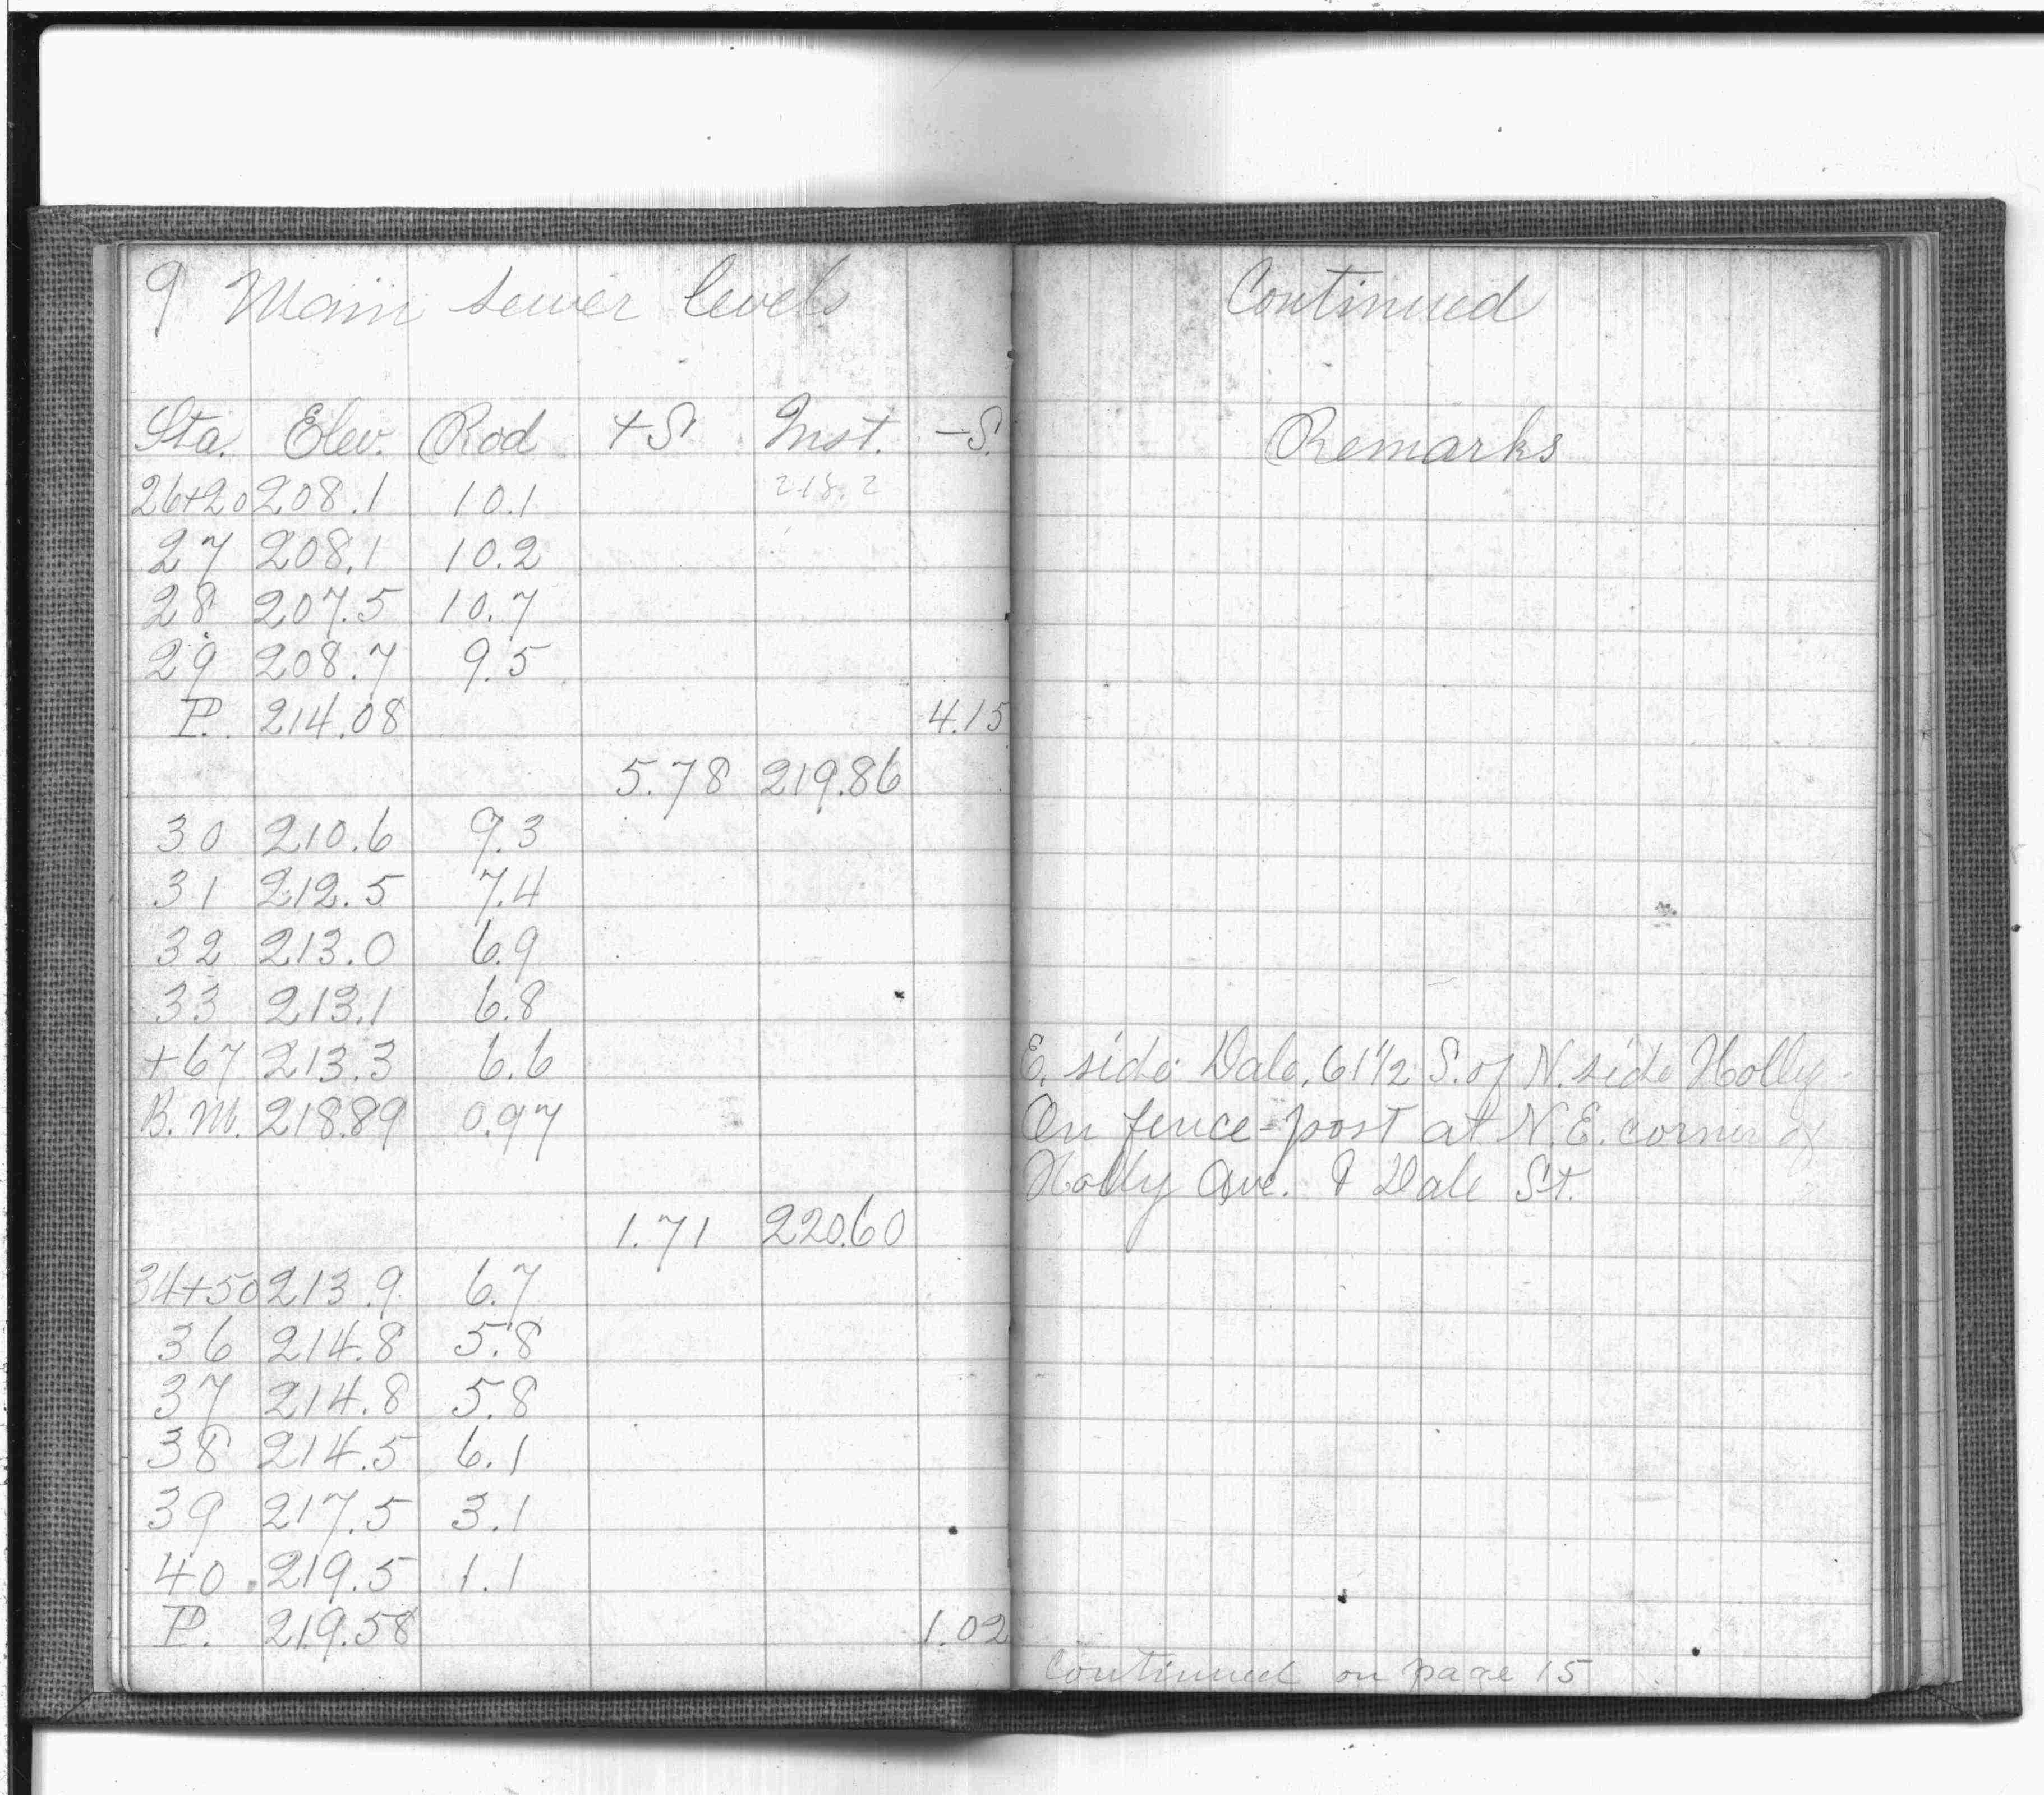 9 Main sewer levels
Continued
Sta. Elev. Rod +S. Inst. -S.
Remarks
218.2
26+20 208.1 10.1
27 208.1 10.2
28 207.5 10.7
29 208.7 9.5
P. 214.08 4.15
5.78 219.86
30 210.6 9.3
31 212.5 7.4
32 213.0 6.9
33 213.1 6.8
+67 213.3 6.6 E. side Dale, 61½ S. of N. side Holly
B.M. 218.89 0.97 On fence-post at N.E. corner of
Holly Ave. & Dale St.
1.71 220.60
34+50 213.9 6.7
36 214.8 5.8
37 214.8 5.8
38 214.5 6.1
39 217.5 3.1
40 219.5 1.1
P. 219.58 1.02
Continued on page 15